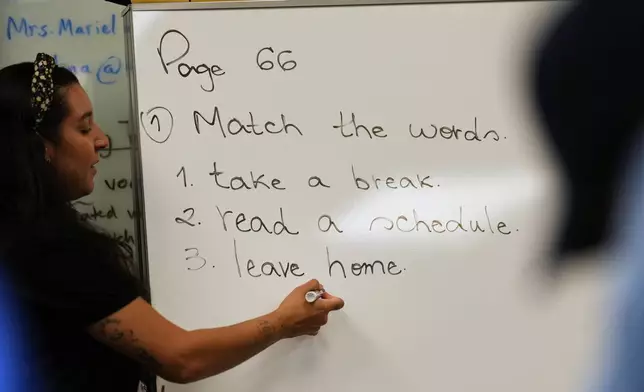 Mrs. Mariel
Page 66
① Match the words.
1. take a break.
2. read a schedule.
3. leave home.